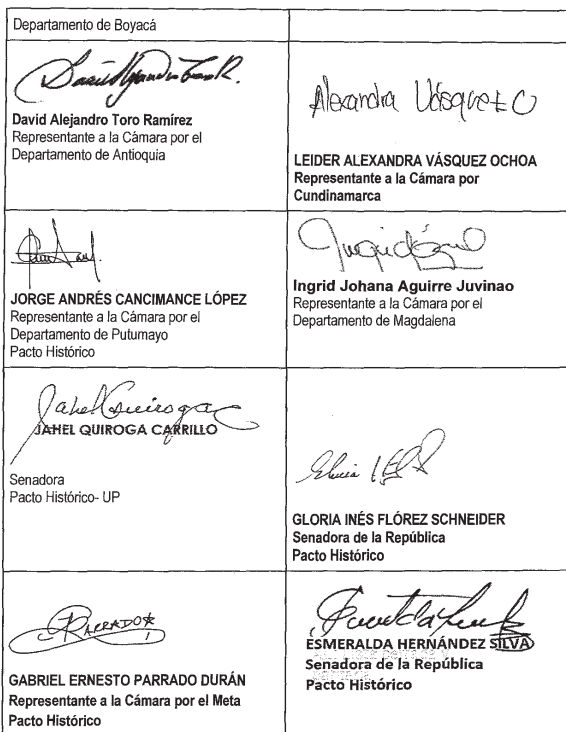 Departamento de Boyacá
David Alejandro Toro Ramírez
Representante a la Cámara por el
Departamento de Antioquia
Alexandra Vásquez O
LEIDER ALEXANDRA VÁSQUEZ OCHOA
Representante a la Cámara por
Cundinamarca
JORGE ANDRÉS CANCIMANCE LÓPEZ
Representante a la Cámara por el
Departamento de Putumayo
Pacto Histórico
Ingrid Johana Aguirre Juvinao
Representante a la Cámara por el
Departamento de Magdalena
Jahel Quiroga
JAHEL QUIROGA CARRILLO
Senadora
Pacto Histórico- UP
GLORIA INÉS FLÓREZ SCHNEIDER
Senadora de la República
Pacto Histórico
GABRIEL ERNESTO PARRADO DURÁN
Representante a la Cámara por el Meta
Pacto Histórico
ESMERALDA HERNÁNDEZ SILVA
Senadora de la República
Pacto Histórico